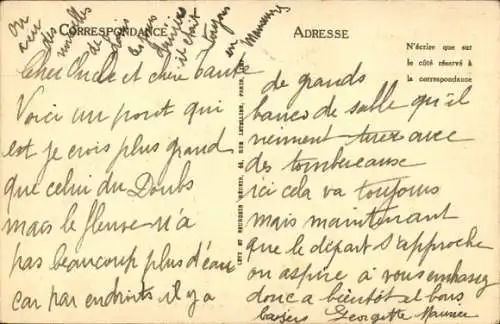 CORRESPONDANCE
ADRESSE
N'écrire que sur
le côté réservé à
la correspondance
on
a eu
des
nouvelles
de
les
il était
toujours
en
Cher Oncle et chère tante
Voici un pont qui
est je crois plus grand
que celui du Doubs
mais le fleuve n'a
pas beaucoup plus d'eau
car par endroits il y a
de grands
bancs de sable qu'il
viennent tirer avec
des tombereaux
ici cela va toujours
mais maintenant
que le départ s'approche
on aspire à vous embrasser
donc a bientôt et bons
baisers Georgette Maurice
LEVY ET NEURDEIN RÉUNIS, 44, RUE LETELLIER, PARIS